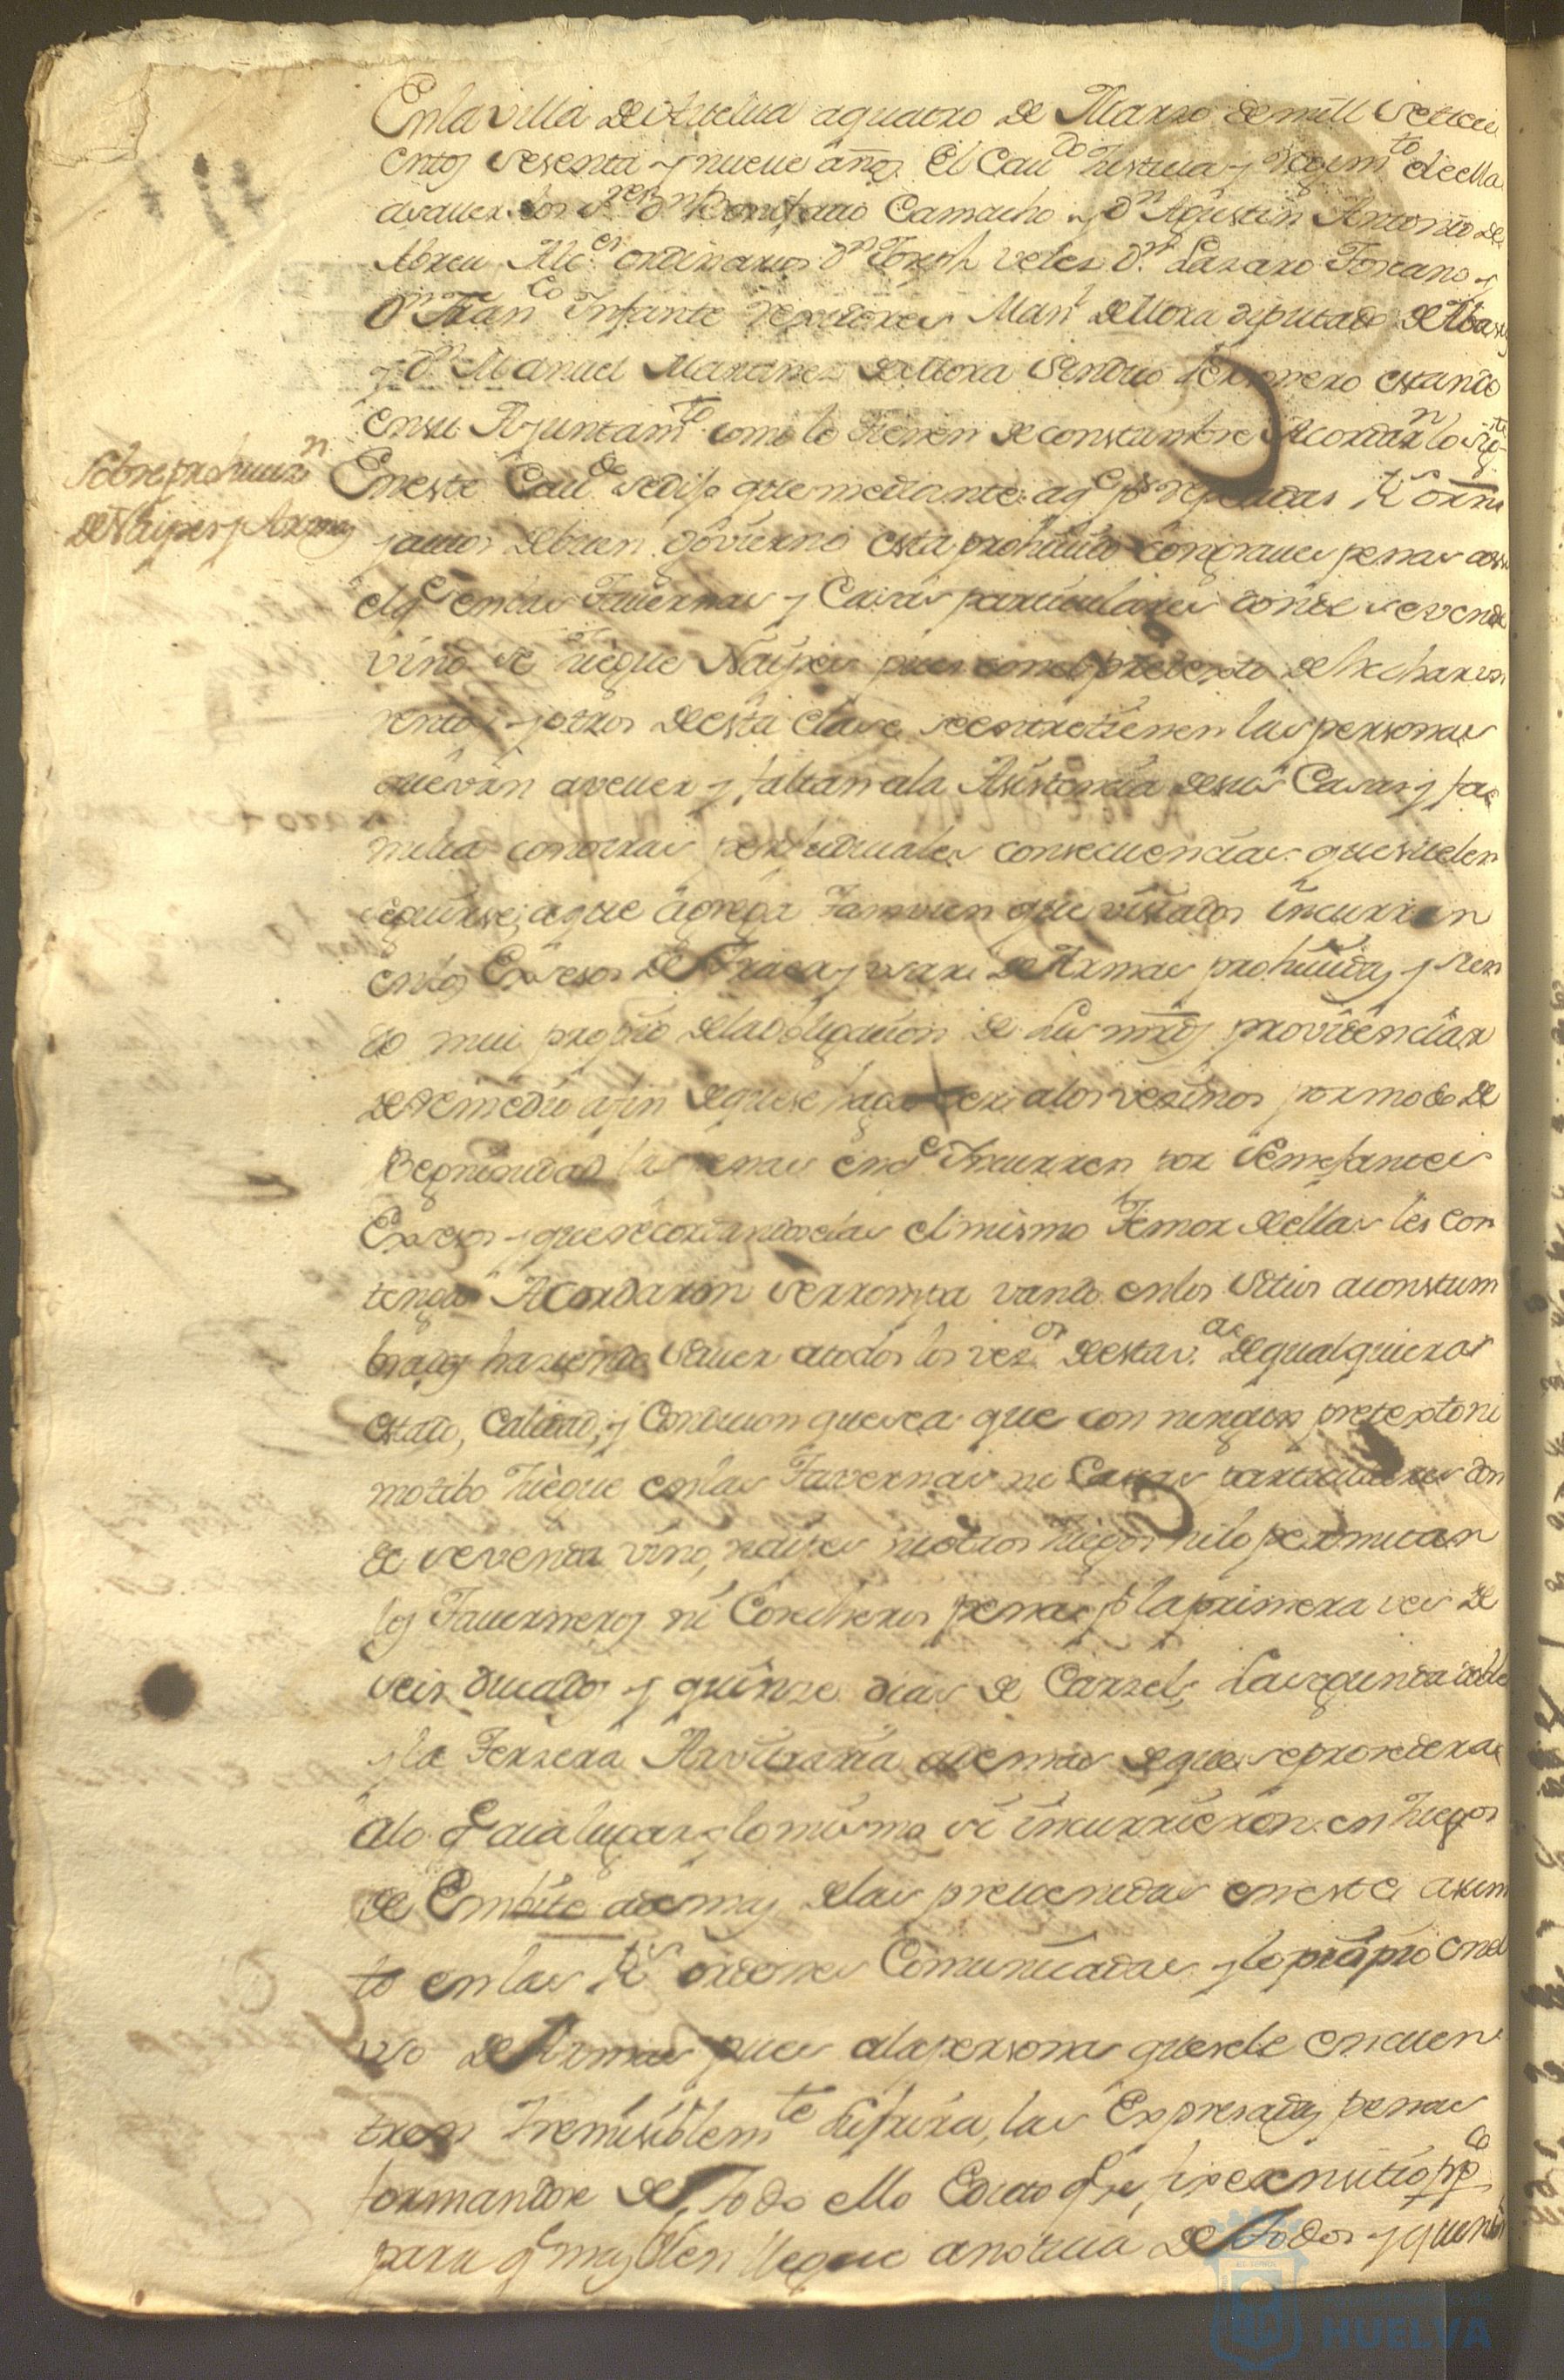 En la villa de Huelua a quatro de Marzo de mill setteci
entos sesenta y nueue años. El Cau.do Justicia y Regim.to de ella
asauer los S.res D.n Bonifacio Camacho y D.n Agustin Antonio de
Abreu Alc.es ordinarios D.n Joseph Velez D.n Lazaro Toscano y
D.n Fran.co Infante Rexidores Man.l de Mora diputado de Abas
y D.n Manuel Martinez de Mora Sindico Perssonero estando
en su Ayuntam.to como lo tienen de constumbre Acordar.n lo sig.te
Sobre prohiuiz.n
de Naypes y Armas
En este Cau.do se dijo que mediante a q.e p.r repetidas R.s orns
y autos de buen govierno esta prohiuido con graues penas assi
el q.e en las Tauernas y Casas particulares donde se vende
vino se juegue Naypes pues con el pretexto de hechar
y otros de esta clase se entretienen las personas
que van a veuer y faltan a la Asistencia de sus Casas y fa
milia con otras perjudiciales consecuencias que suelen
seguirse; a que agrega tamvien que viciados incurren
en los Exsesos de traer y usar de Armas prohiuidas y sien
do mui proprio de la obligacion de Sus mrds providenciar
de remedio a fin de que se haga ver a los vezinos por modo de
Begninidad las penas en q.e Incurren por Semejantes
Exsesos y que recordandoselas el mismo Temor de ellas les con
tenga Acordaron se rrompa vando en los Sitios aconstum
brados haziendo Sauer a todos los vez.os de esta v.a de qualquiera
estado, calidad, y Condicion que sea que con ningun pretexto ni
motibo juegue en las Tavernas ni Casas particulares don
de se venda vino, naipes ni otros juegos ni lo permitan
los Tauerneros ni Cosecheros penas p.r la primera ves de
seis ducados y quinze dias de Carzel; La segunda doble
y la Terzera Arvitraria ademas de que se prozedera
a lo q.e aia lugar, y lo mismo si incurrieren en juegos
de Embite ademas de las preuenidas en este asum
to en las R.s ordenes Comunicadas y lo propio en el
uso de Armas pues a la persona que se le encuen
tren Irremisiblem.te Sufrira, las Expresadas penas
formandose de todo ello Edicto q.e se fixe en sitio pp.co
para q.e mas bien llegue a noticia de todos y que ni
HUELVA